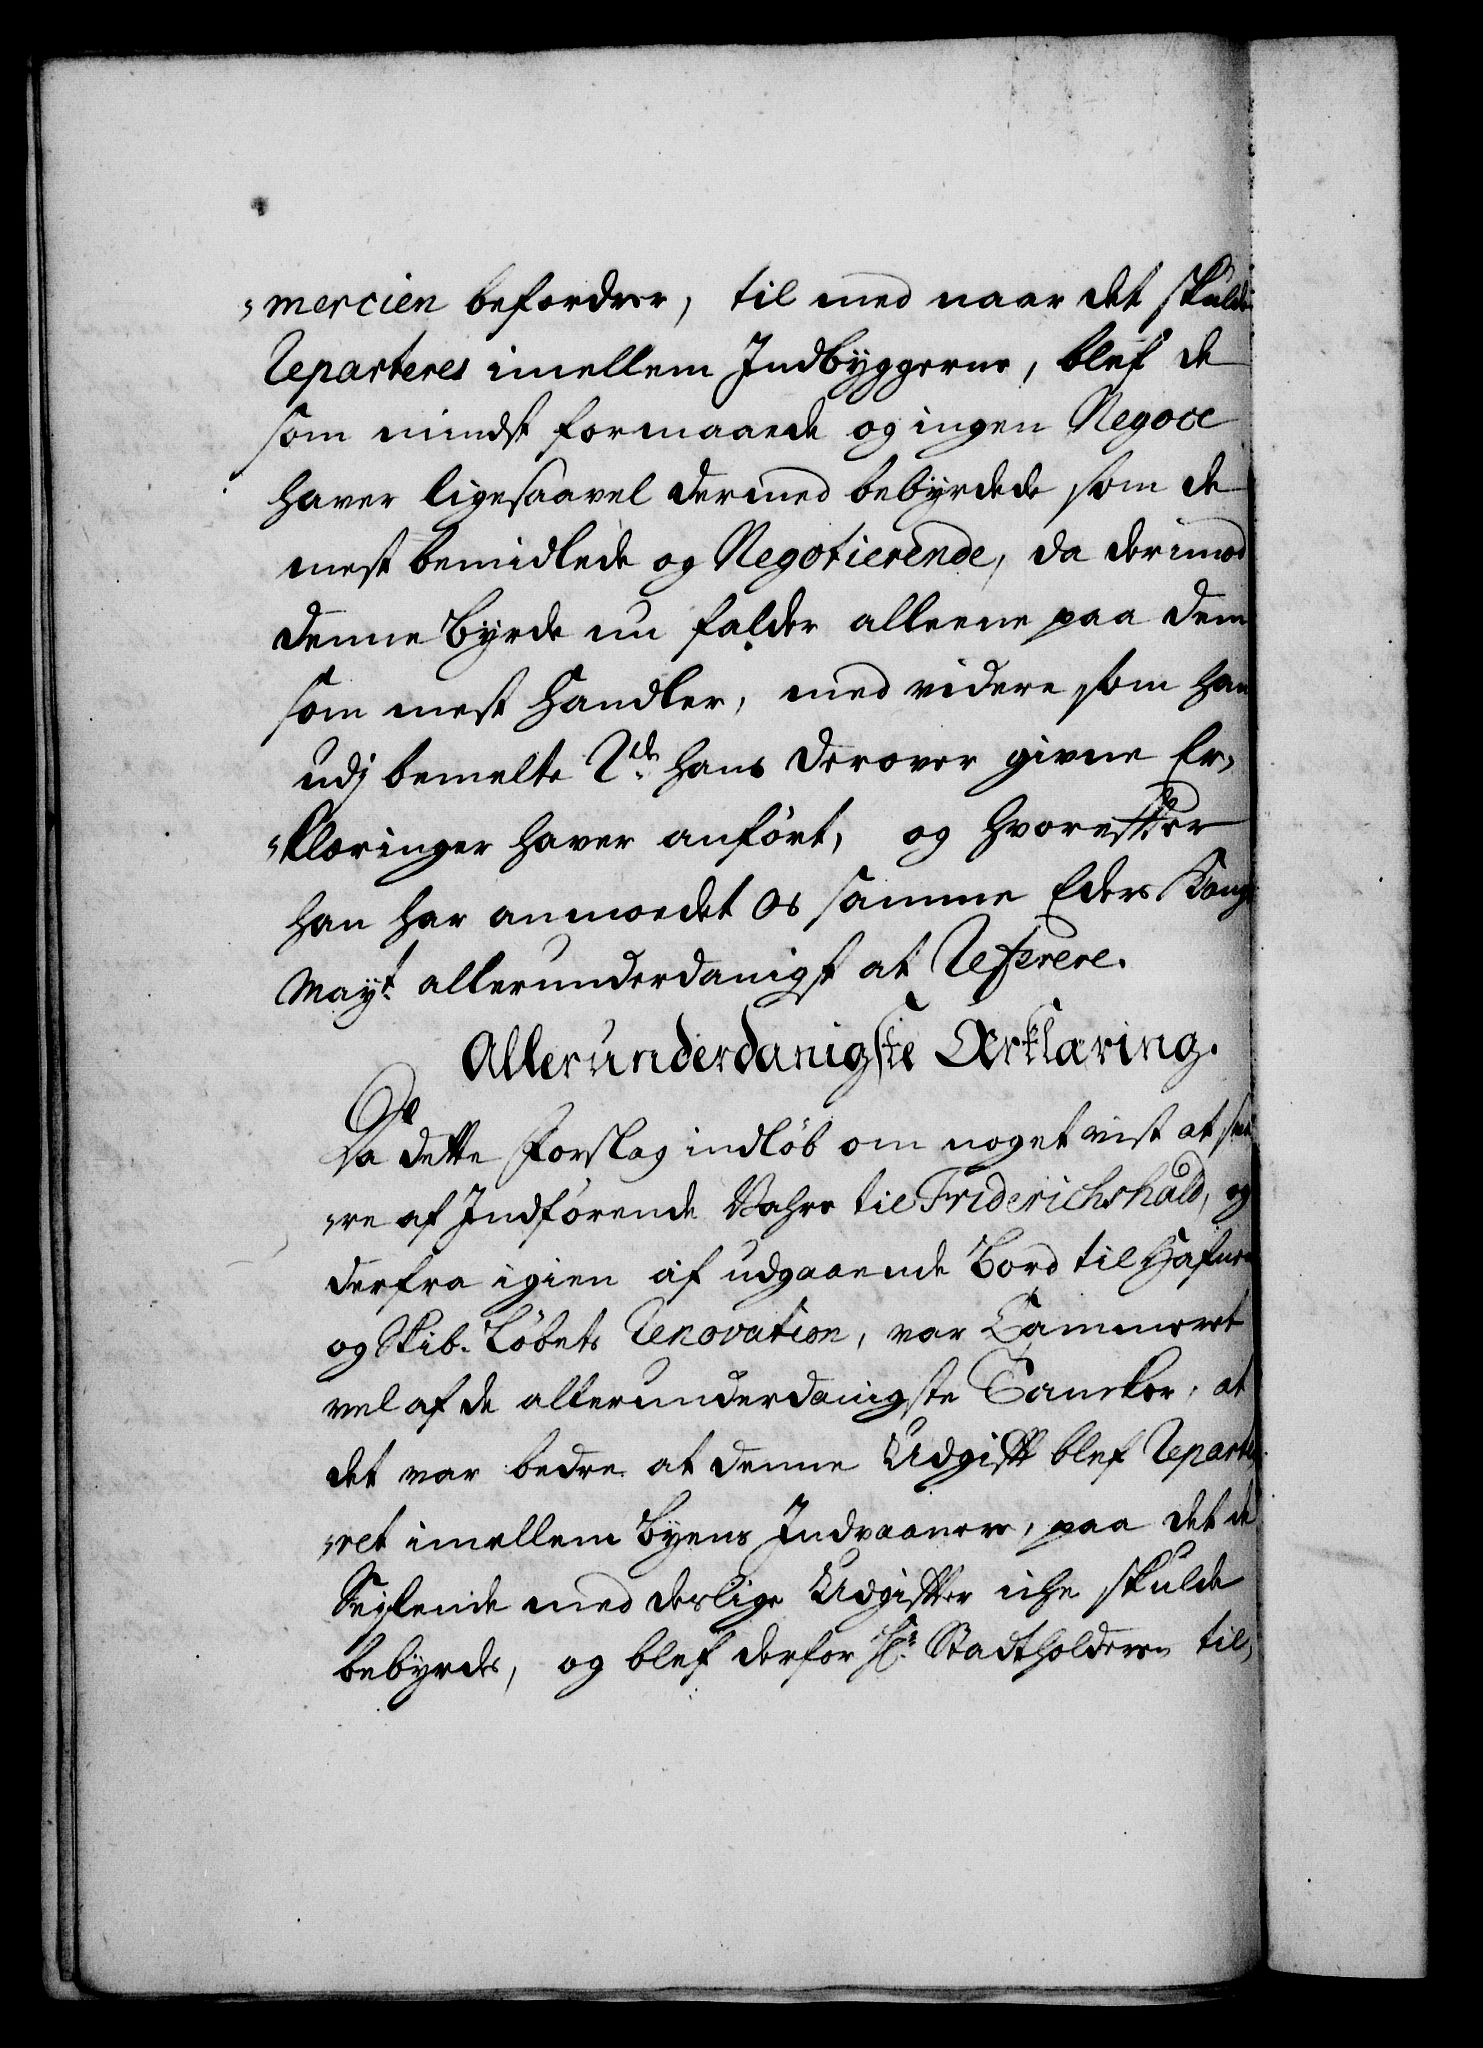 mercien befordrer, til med naar det skulde
Reparteres imellem Indbyggerne, blef de
som mindst formaaede og ingen Negoce
haver ligesaavel dermed bebyrdede som de
mest bemidlede og Negotierende, da derimod
denne byrde nu falder alleene paa dem
som mest handler, med videre som han
udj bemelte hans derover givne Er-
klæringer haver anført, og hvorefter
han har anmoedet os samme Eders Kongl
Mayt. allerunderdanigst at Referere.
Allerunderdanigste Erklæring.
Da dette Forslag indløb om noget vist at
re af Indførende Vahre til Friderichshald, og
derfra igien af udgaaende Bord til Hafnens
og Skib-Løbets Renovation, var Cammeret
vel af de allerunderdanigste Tancker, at
det var bedre at denne Udgift blef Reparte
ret imellem Byens Indvaanere, paa det de
Seylende med deslige Udgifter iche skulde
bebyrdes, og blef derfor Hr. Stadtholderen til-